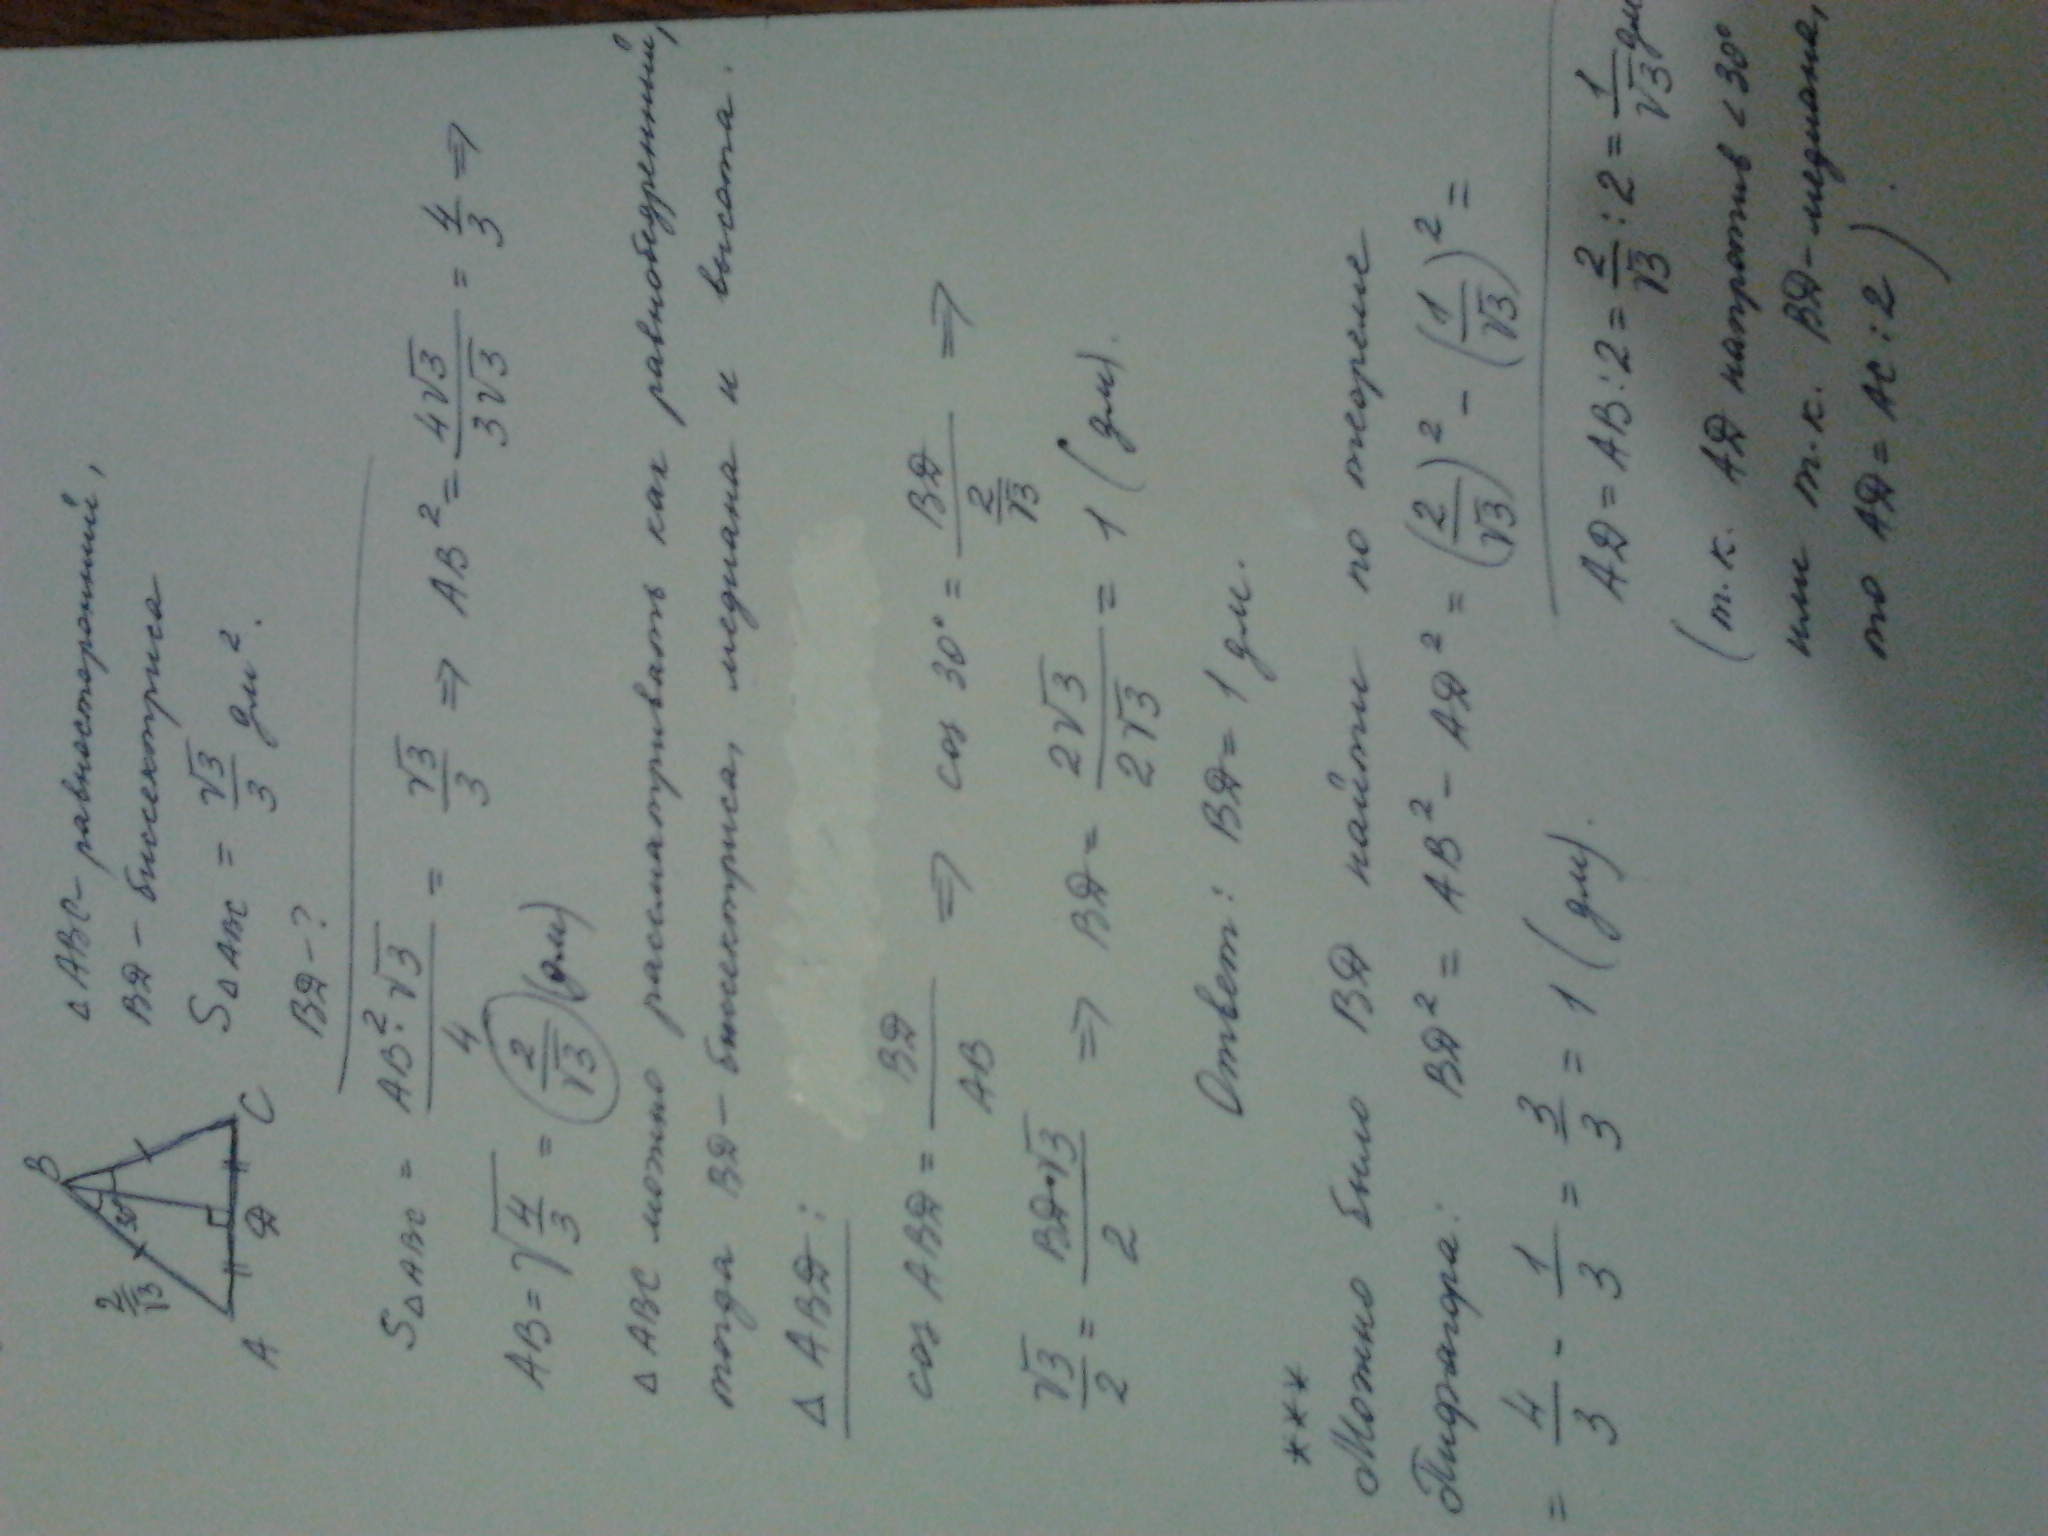 B
2/√3
30°
A
D
C
Δ ABC - равносторонний,
BD - биссектриса
S Δ ABC = √3/3 дм².
BD - ?
S Δ ABC = AB²·√3/4 = √3/3 ⇒ AB² = 4√3/3√3 = 4/3 ⇒
AB = √4/3 = 2/√3 (дм)
Δ ABC можно рассматривать как равнобедренный,
тогда BD - биссектриса, медиана и высота.
Δ ABD:
cos ABD = BD/AB ⇒ cos 30° = BD/(2/√3) ⇒
√3/2 = BD·√3/2 ⇒ BD = 2√3/2√3 = 1 (дм).
Ответ: BD = 1 дм.
***
Можно было BD найти по теореме
Пифагора: BD² = AB² - AD² = (2/√3)² - (1/√3)² =
= 4/3 - 1/3 = 3/3 = 1 (дм).
AD = AB : 2 = 2/√3 : 2 = 1/√3 дм
(т.к. AD напротив < 30°
или т.к. BD - медиана,
то AD = AC : 2).